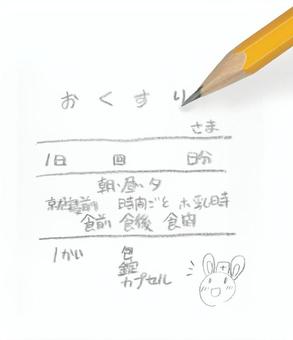 おくすり
さま
1日 回 日分
朝・昼・夕
時間ごと
食前 食後 食間
1かい 包
錠
カプセル